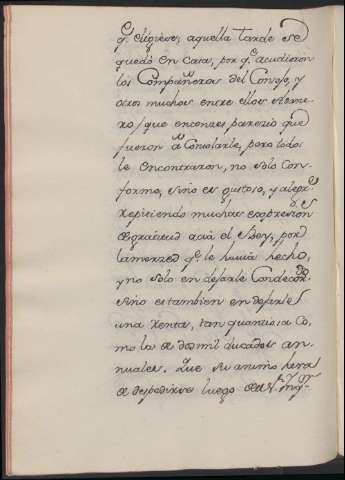 q.e eligiese; aquella tarde se
quedó en casa, por q.e acudieron
los Compañeros del Consejo, y
otros muchos entre ellos Rome-
ro / que entonces parezio que
fueron a Consolarle, pero todos
le encontraron, no solo Con-
forme, sino es gustoso, y alegre
repitiendo muchas expresion.s
de gratitud acia el Rey, por
la merzed q.e le havia hecho,
y no solo en dejarle Condecor.do
sino es tambien en dejarle
una renta, tan quantiosa co-
mo la de dos mil ducados an-
nuales. Que su animo hera
de despedirse luego de